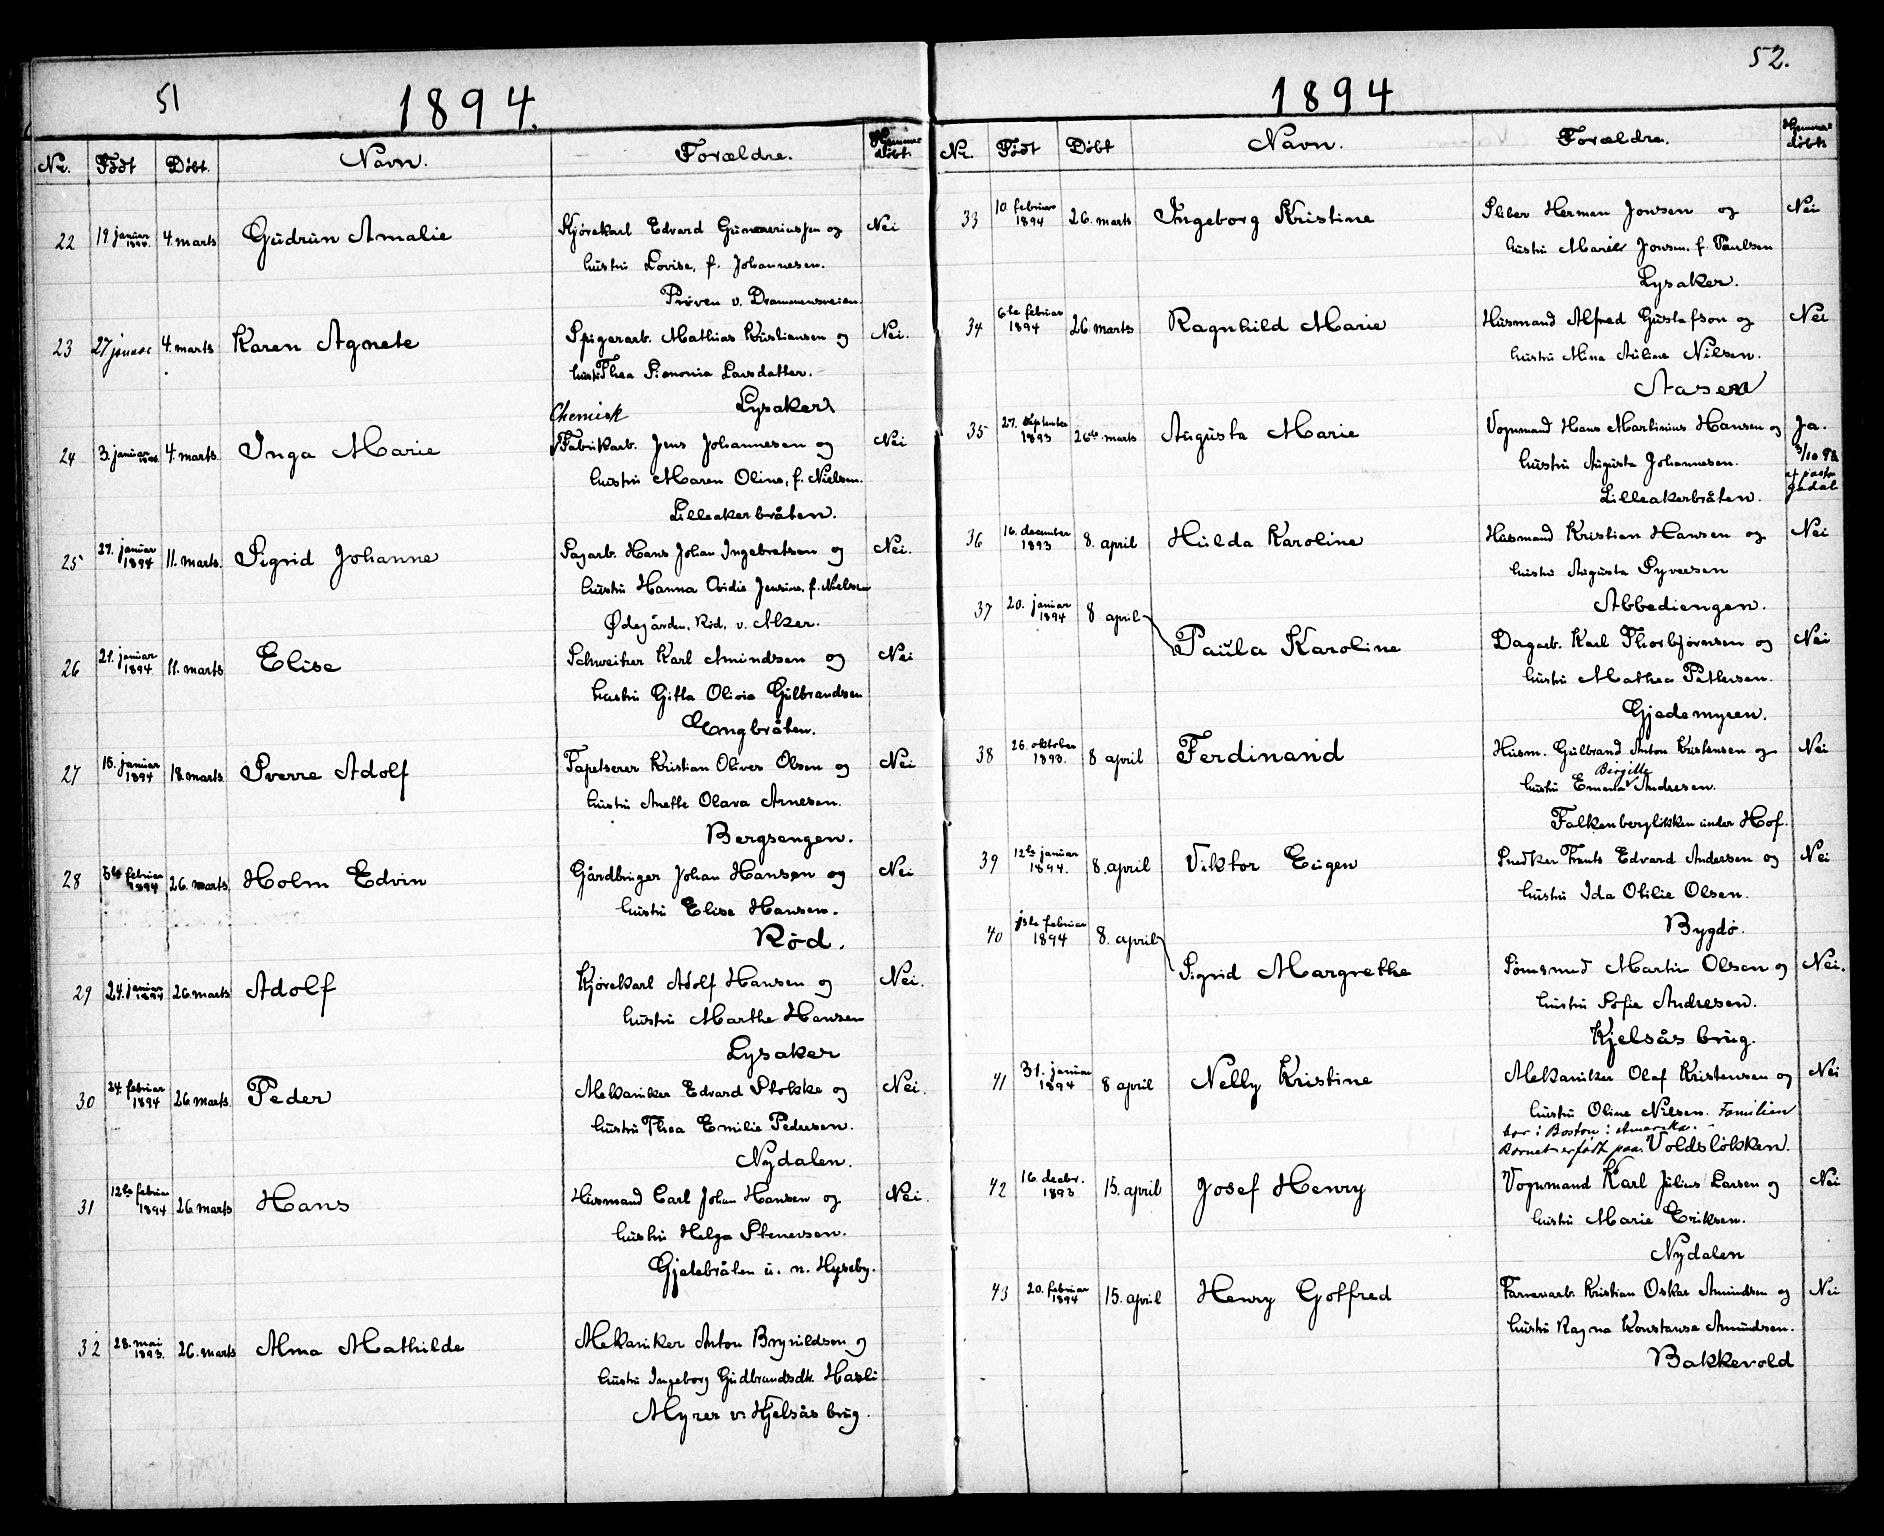 51
1894.
Nr. Født Døbt. Navn. Forældre. Hjemmedøbt.
22 19 januar 1894. 4. marts Gudrun Amalie Kjørekarl Edvard Gunneriussen og Nei
hustru Lovise, f. Johannesen.
Prøven v. Drammensveien.
23 27 januar 4. marts Karen Agnete Spigerarb. Mathias Kristiansen og Nei.
hustru Thea Simonia Larsdatter.
Lysaker
Chemisk
24 3. januar 1894 4. marts. Inga Marie Fabrikarb. Jens Johannesen og Nei
hustru Maren Oline, f. Nielsen.
Lilleakerbråten.
25 27. januar 1894 11. marts. Sigrid Johanne Sagarb. Hans Johan Ingebretsen og Nei.
hustru Hanna Ovidie Jensine, f. Nielsen
Ødegården, Rød, v. Aker.
26 21. januar 1894 11. marts Elise Schweitzer Karl Amundsen og Nei
hustru Gitta Olivia Gulbrandsen
Engbråten.
27 15. januar 1894 18. marts Sverre Adolf Tapetserer Kristian Oliver Olsen og Nei
hustru Anette Olava Arnesen.
Bergsengen.
28 5te februar 1894 26. marts Holm Edvin Gårdbruger Johan Hansen og Nei
hustru Elise Hansen.
Rød.
29 24. januar 1894 26. marts Adolf Kjørekarl Adolf Hansen og Nei.
hustru Marthe Hansen
Lysaker
30 24. februar 1894 26 marts. Peder Mekaniker Edvard Stokke og Nei.
hustru Thea Emilie Pedersen.
Nydalen.
31 12te februar 1894 26 marts Hans Husmand Carl Johan Hansen og Nei.
hustru Helga Stenersen.
Gjetebråten u. n. Hyseby.
32 28. mai 1893. 26. marts Alma Mathilde Mekaniker Anton Brynildsen og
hustru Ingeborg Gudbrandsdtr. Hasli
Myrer v. Kjelsås brug.
52.
1894
Nr. Født Døbt Navn. Forældre. Hjemmedøbt
33 10. februar 1894 26. marts Ingeborg Kristine Sliber Herman Jonsen og Nei
hustru Marie Jonsen, f. Paulsen
Lysaker.
34 6te februar 1894 26. marts Ragnhild Marie Husmand Alfred Gustafson og Nei
hustru Mina Auline Nilsen.
Aasen
35 27. september 1893 26de marts Augusta Marie Vognmand Hans Martinius Hansen og Ja.
hustru Augusta Johannesen. 3/10 93
af pastor
Lilleakerbråten. Jødal
36 16. december 1893 8. april Hulda Karoline Husmand Kristian Hansen og Nei
hustru Augusta Syversen
Abbediengen.
37 20. januar 1894 8 april Paula Karoline Dagarb. Karl Thorbjørnsen og Nei
hustru Mathea Pettersen.
Gjedemyren.
38 26. oktober 1893. 8 april Ferdinand Husm. Gulbrand Anton Kristensen og Nei
Birgitte
hustru Emma Andresen.
Falkenbergløkken under Hof.
39 12te januar 1894. 8. april Viktor Eugen Snedker Frants Edvard Andersen og Nei
hustru Ida Otilie Olsen.
Bygdø.
40 1ste februar 1894 8. april Sigrid Margrethe Sømsmed Martin Olsen og Nei.
hustru Sofie Andresen.
Kjelsås brug.
41 31. januar 1894 8 april Nelly Kristine Mekaniker Olaf Kristensen og Nei
hustru Oline Nilsen. Familien
bor i Boston i Amerika.
Barnet er født paa Voldsløkken.
42 16. decbr. 1893 15. april Josef Henry Vognmand Karl Julius Larsen og Nei
hustru Marie Eriksen.
Nydalen
43 20. februar 1894 15. april Henry Gotfred Farveriarb. Kristian Oskar Amundsen og Nei
hustru Ragna Konstanse Amundsen.
Bakkevold